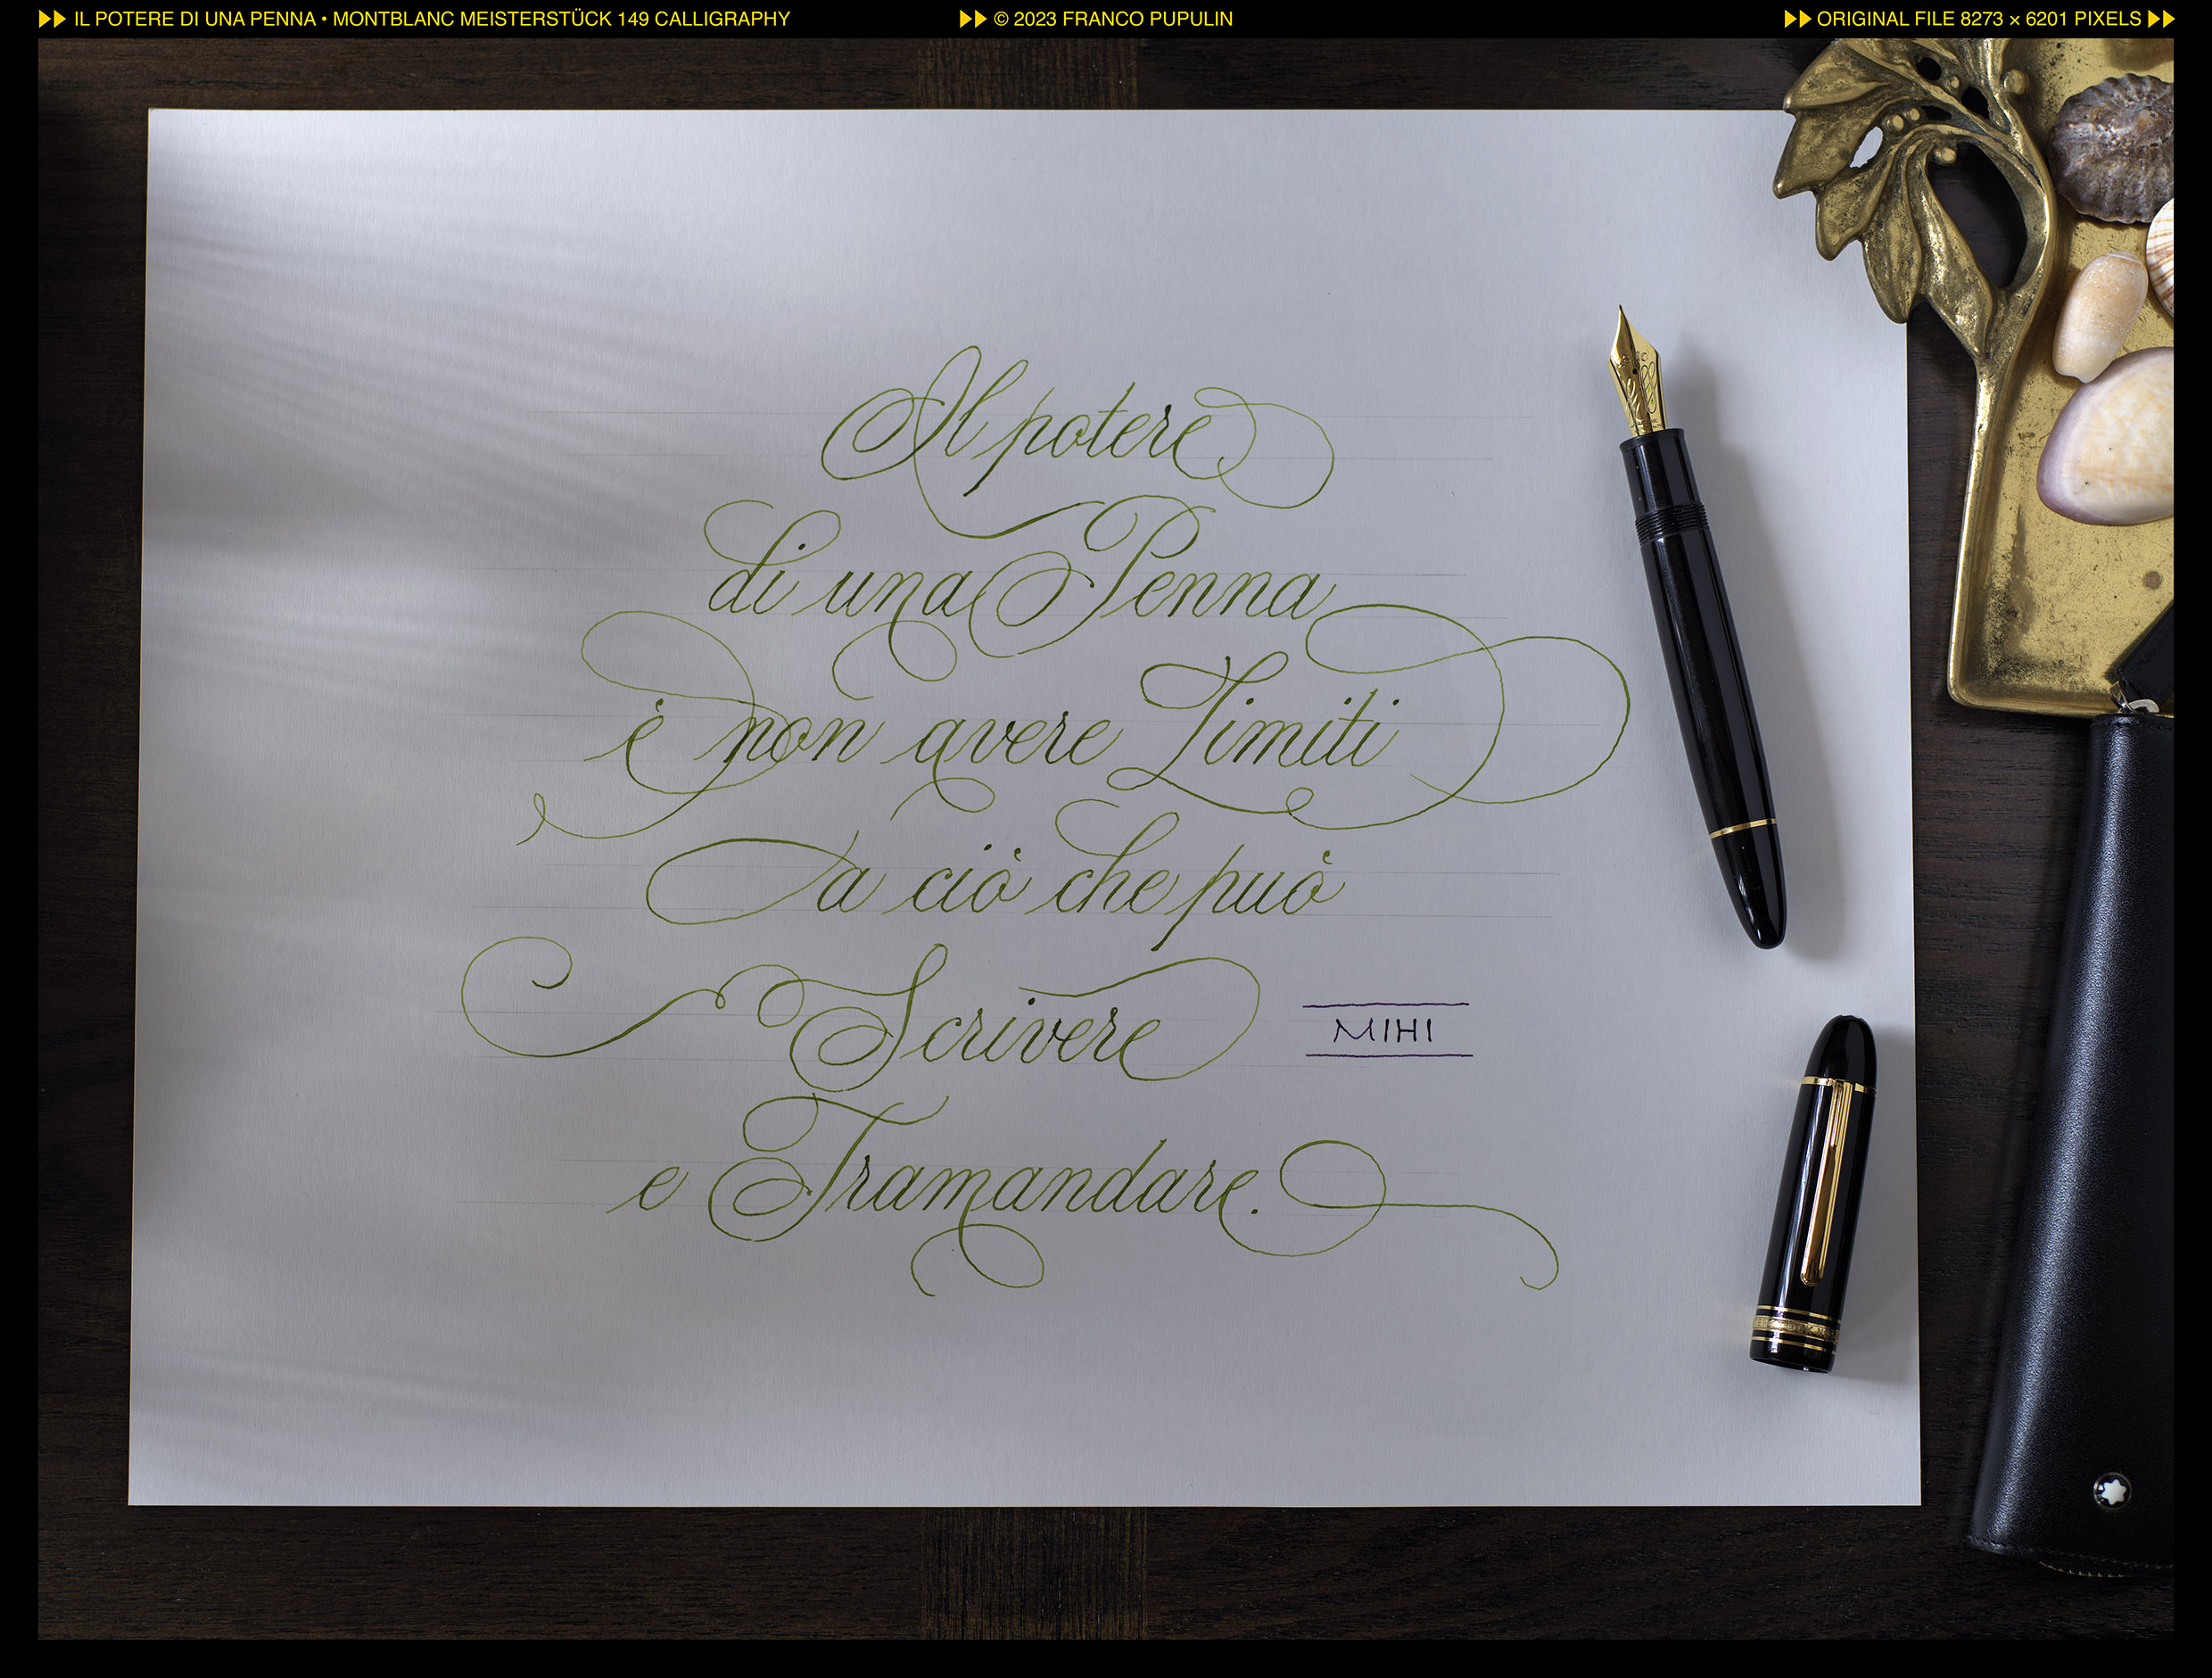 IL POTERE DI UNA PENNA • MONTBLANC MEISTERSTÜCK 149 CALLIGRAPHY
© 2023 FRANCO PUPULIN
ORIGINAL FILE 8273 × 6201 PIXELS
Il potere
di una Penna
è non avere Limiti
a ciò che può
Scrivere
MIHI
e Tramandare.